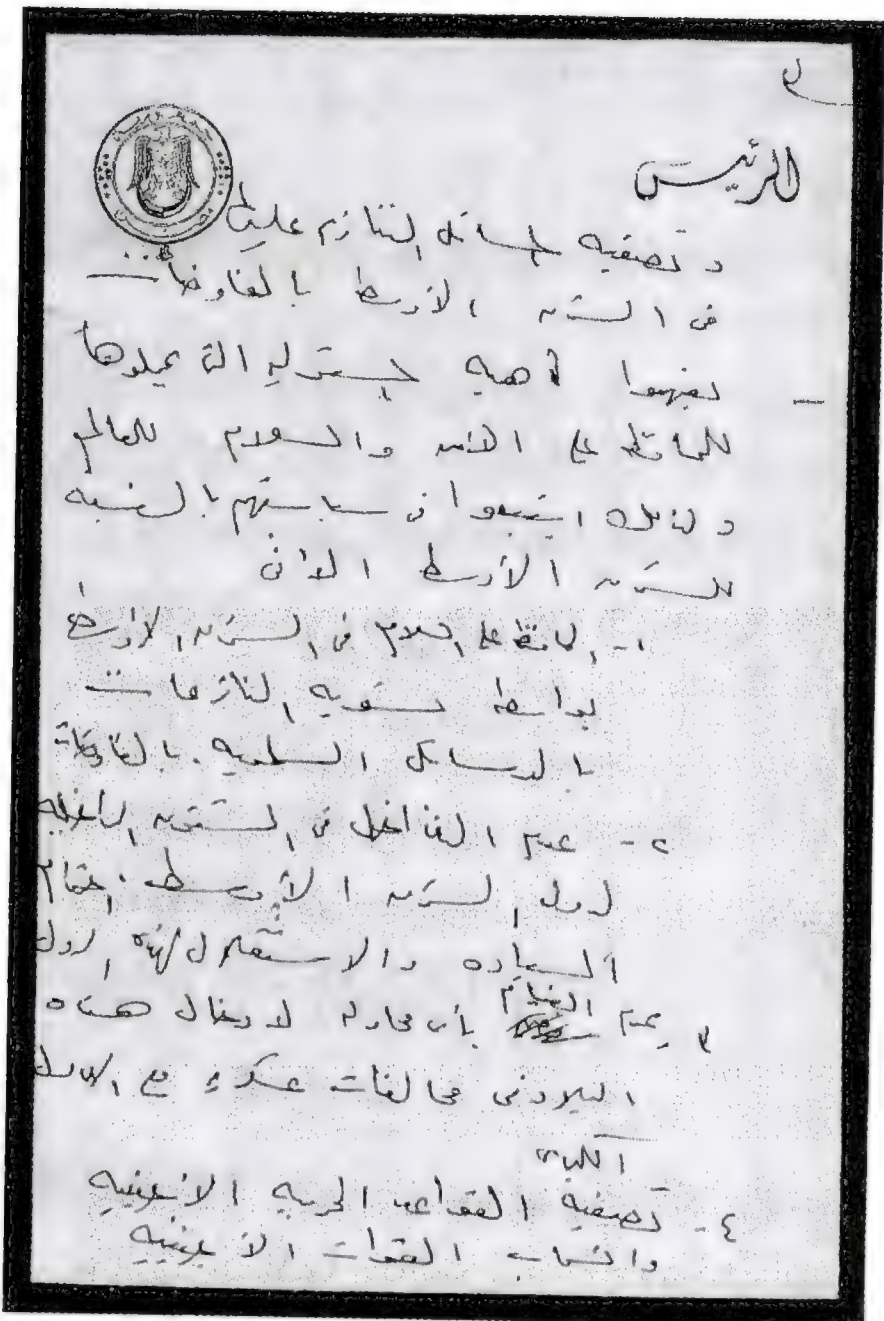 ٣
الرئيس
وتصفيه المسائل المتنازع عليها
فى الشرق الأوسط بالمفاوضات
- يفهموا اهميه المسئوليه التى يحملوها
للمحافظه على الامن والسلام للعالم
ولذلك اتبعوا فى سياستهم بالنسبه
للشرق الأوسط الاتى
١- المحافظه على السلام فى الشرق الاوسط
بواسطه تسويه المنازعات
بالوسائل السلميه بالمفاوضات
٢- عدم التداخل فى الشئون الداخليه
لدول الشرق الأوسط احترام
السياده والاستقلال لهذه الدول
٣ عدم القيام بأى محاوله لادخال هذه
البلاد فى محالفات عسكريه مع الدول
الكبرى
٤- تصفيه القواعد الحربيه الاجنبيه
وانسحاب القوات الاجنبيه